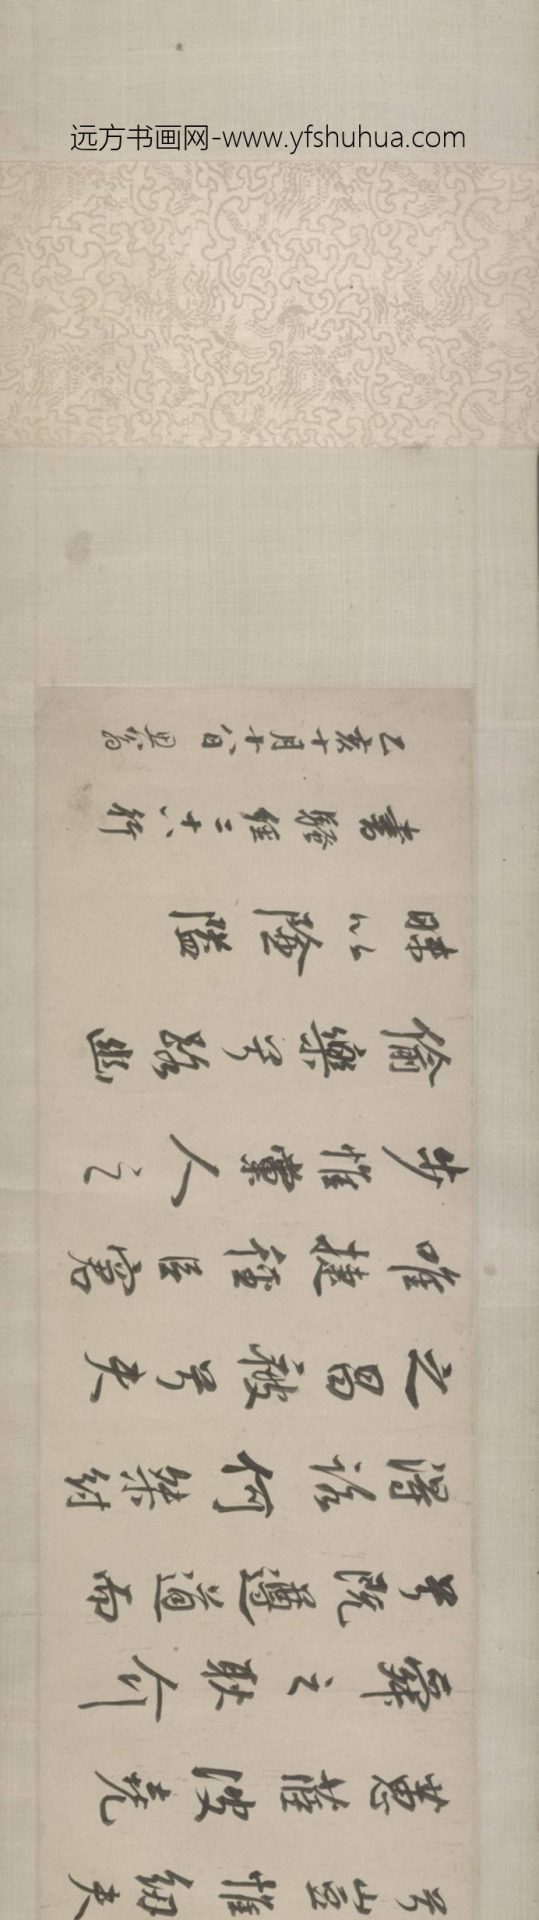 远方书画网-www.yfshuhua.com
兮豈惟紉夫
蕙茝彼堯
舜之耿介
兮既遵道而
得路何桀紂
之昌被兮夫
唯捷徑窘
步惟黨人之
偷樂兮路幽
昧以險隘
書騷經二十八行
乙亥十月十八日思翁